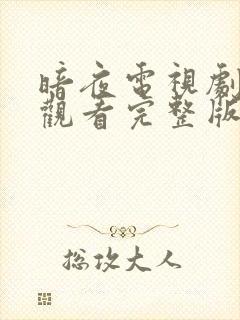 暗夜電視劇
觀看完整版
总攻大人